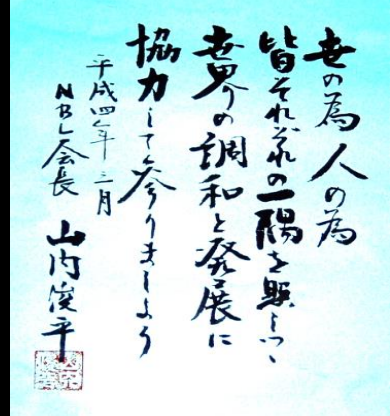 世の為人の為
皆それぞれの一隅を照しつゝ
世界の調和と発展に
協力して参りましょう
平成四年三月
NBL会長 山内俊平